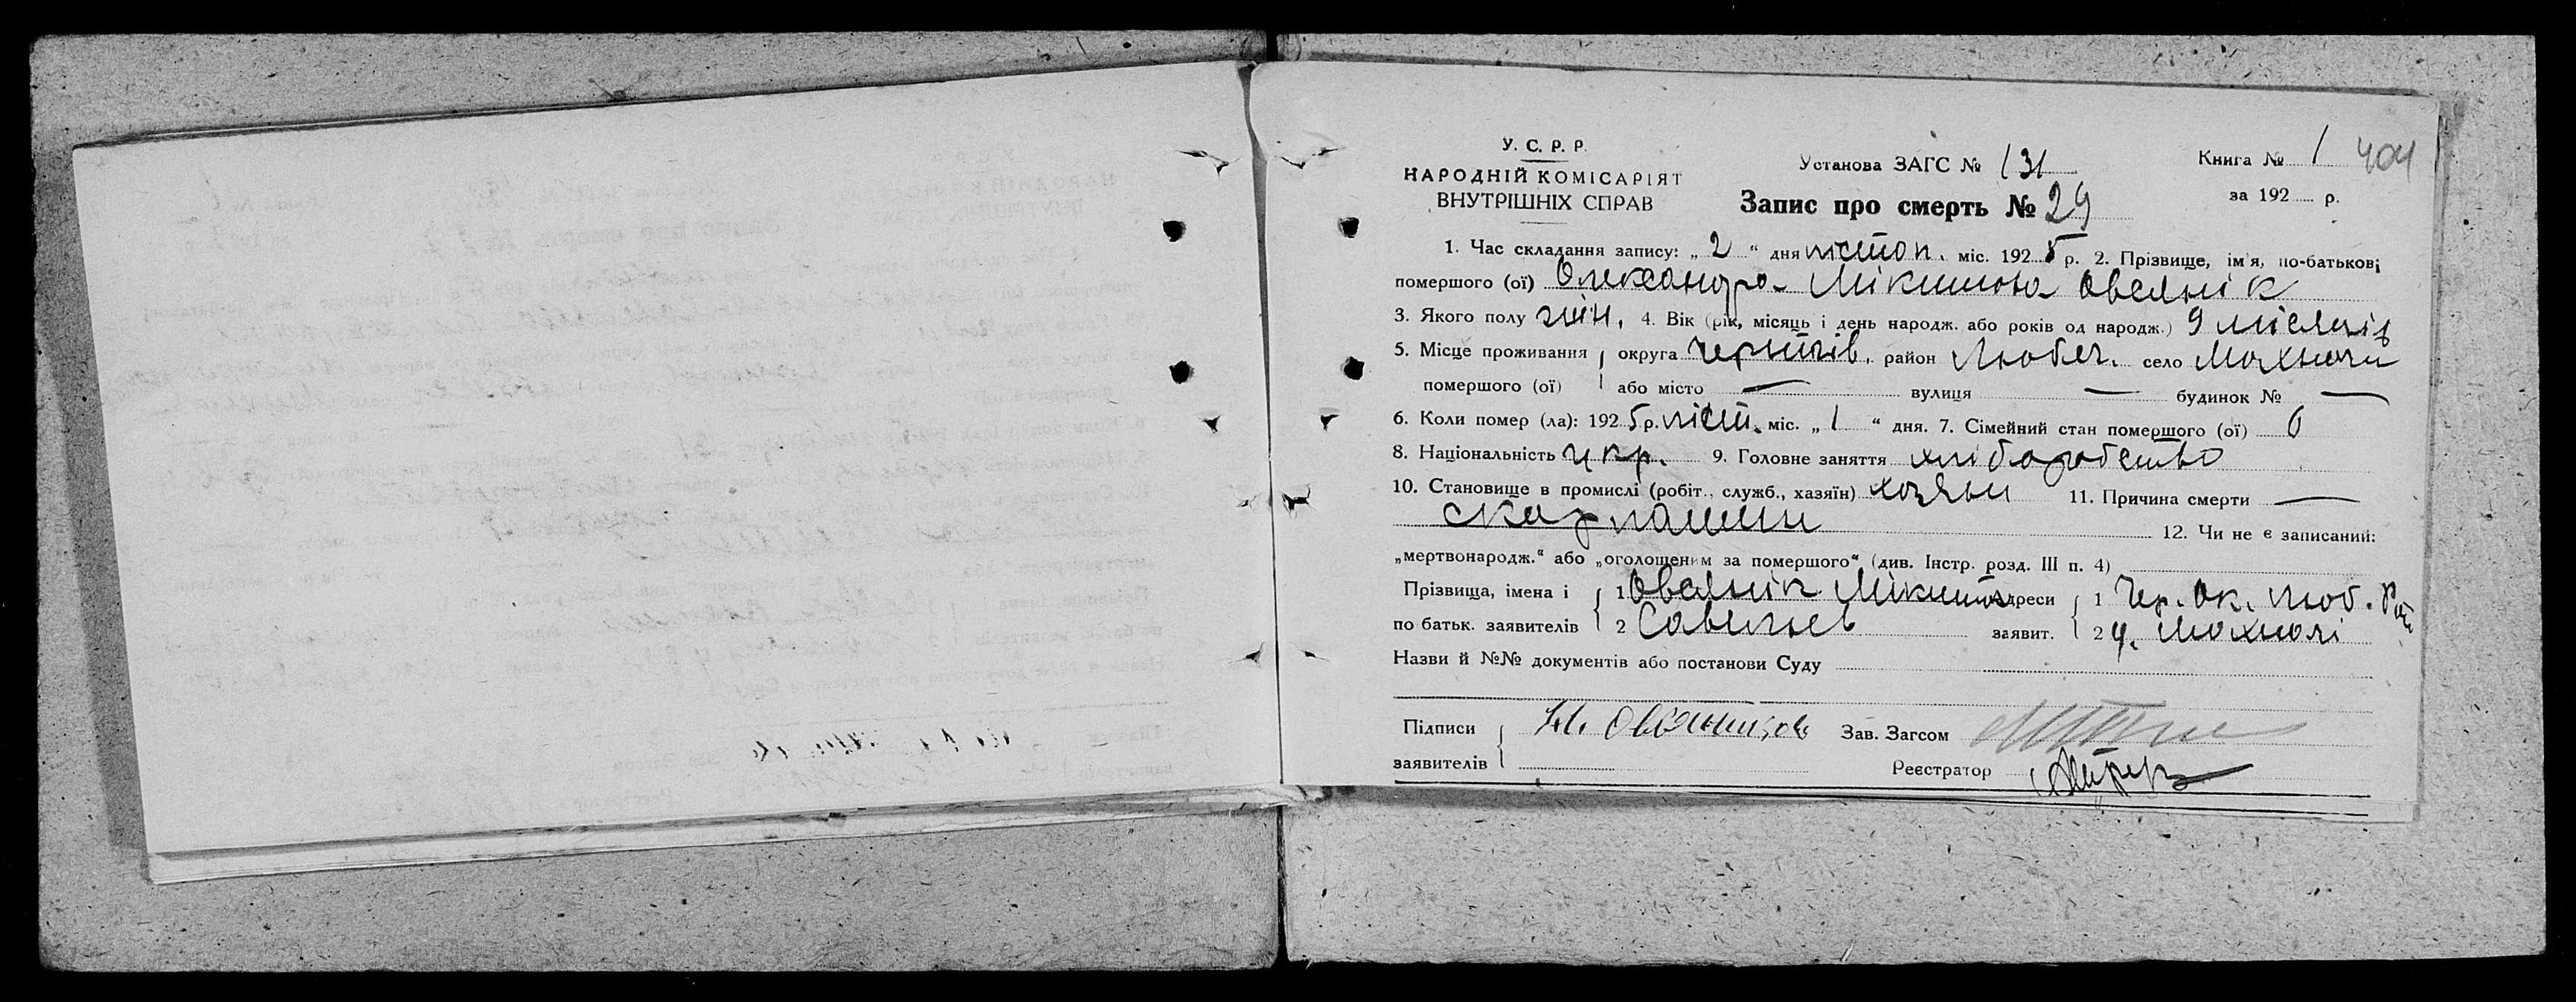 У. С. Р. Р.
НАРОДНІЙ КОМІСАРІЯТ
ВНУТРІШНІХ СПРАВ
Установа ЗАГС № 131
Книга № 1 404
Запис про смерть № 29
за 192 р.
1. Час складання запису: „ 2 “ дня листоп. міс. 192 5 р. 2. Прізвище, ім'я, по-батькові
помершого (ої) Олександра Мікитова Овсяник
3. Якого полу жін. 4. Вік (рік, місяць і день народж. або років од народж.) 9 місяців
5. Місце проживання округа Чернігів. район Любеч. село Мохначи
помершого (ої) або місто — вулиця — будинок № —
6. Коли помер (ла): 192 5 р. лист. міс. „ 1 “ дня. 7. Сімейний стан помершого (ої) 0
8. Національність укр. 9. Головне заняття хліборобство
10. Становище в промислі (робіт., служб., хазяїн) хозяин 11. Причина смерти —
скарлатин 12. Чи не є записаний:
„мертвонародж.“ або „оголошеним за помершого“ (див. Інстр. розд. III п. 4)
Прізвища, імена і 1 Овсянік Мікита Адреси 1 Чер. Ок. Люб. Рай
по батьк. заявителів 2 Савельев заявит. 2
Назви й №№ документів або постанови Суду
Підписи Зав. Загсом
заявителів Реєстратор